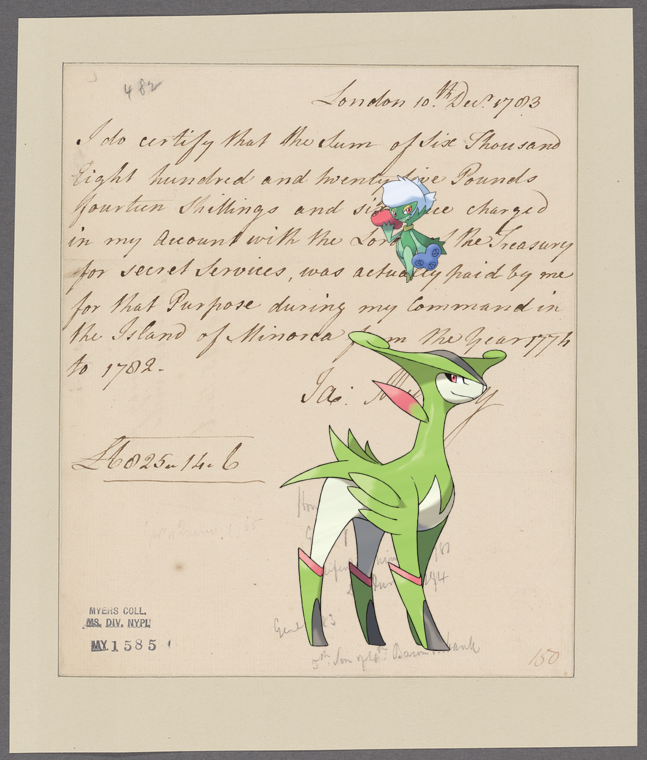 482
London 10th Decr. 1783
I do certify that the Sum of Six Thousand
Eight hundred and twenty five Pounds
fourteen Shillings and charged
in my Account with the the Treasury
for secret Services, was actually paid by me
for that Purpose during my Command in
the Island of Minorca from the Year 1774
to 1782.
Jas:
£6825 " 14 " 6
5th Son of 4th Baron
MYERS COLL.
MS. DIV. NYPL
MY 1585
150